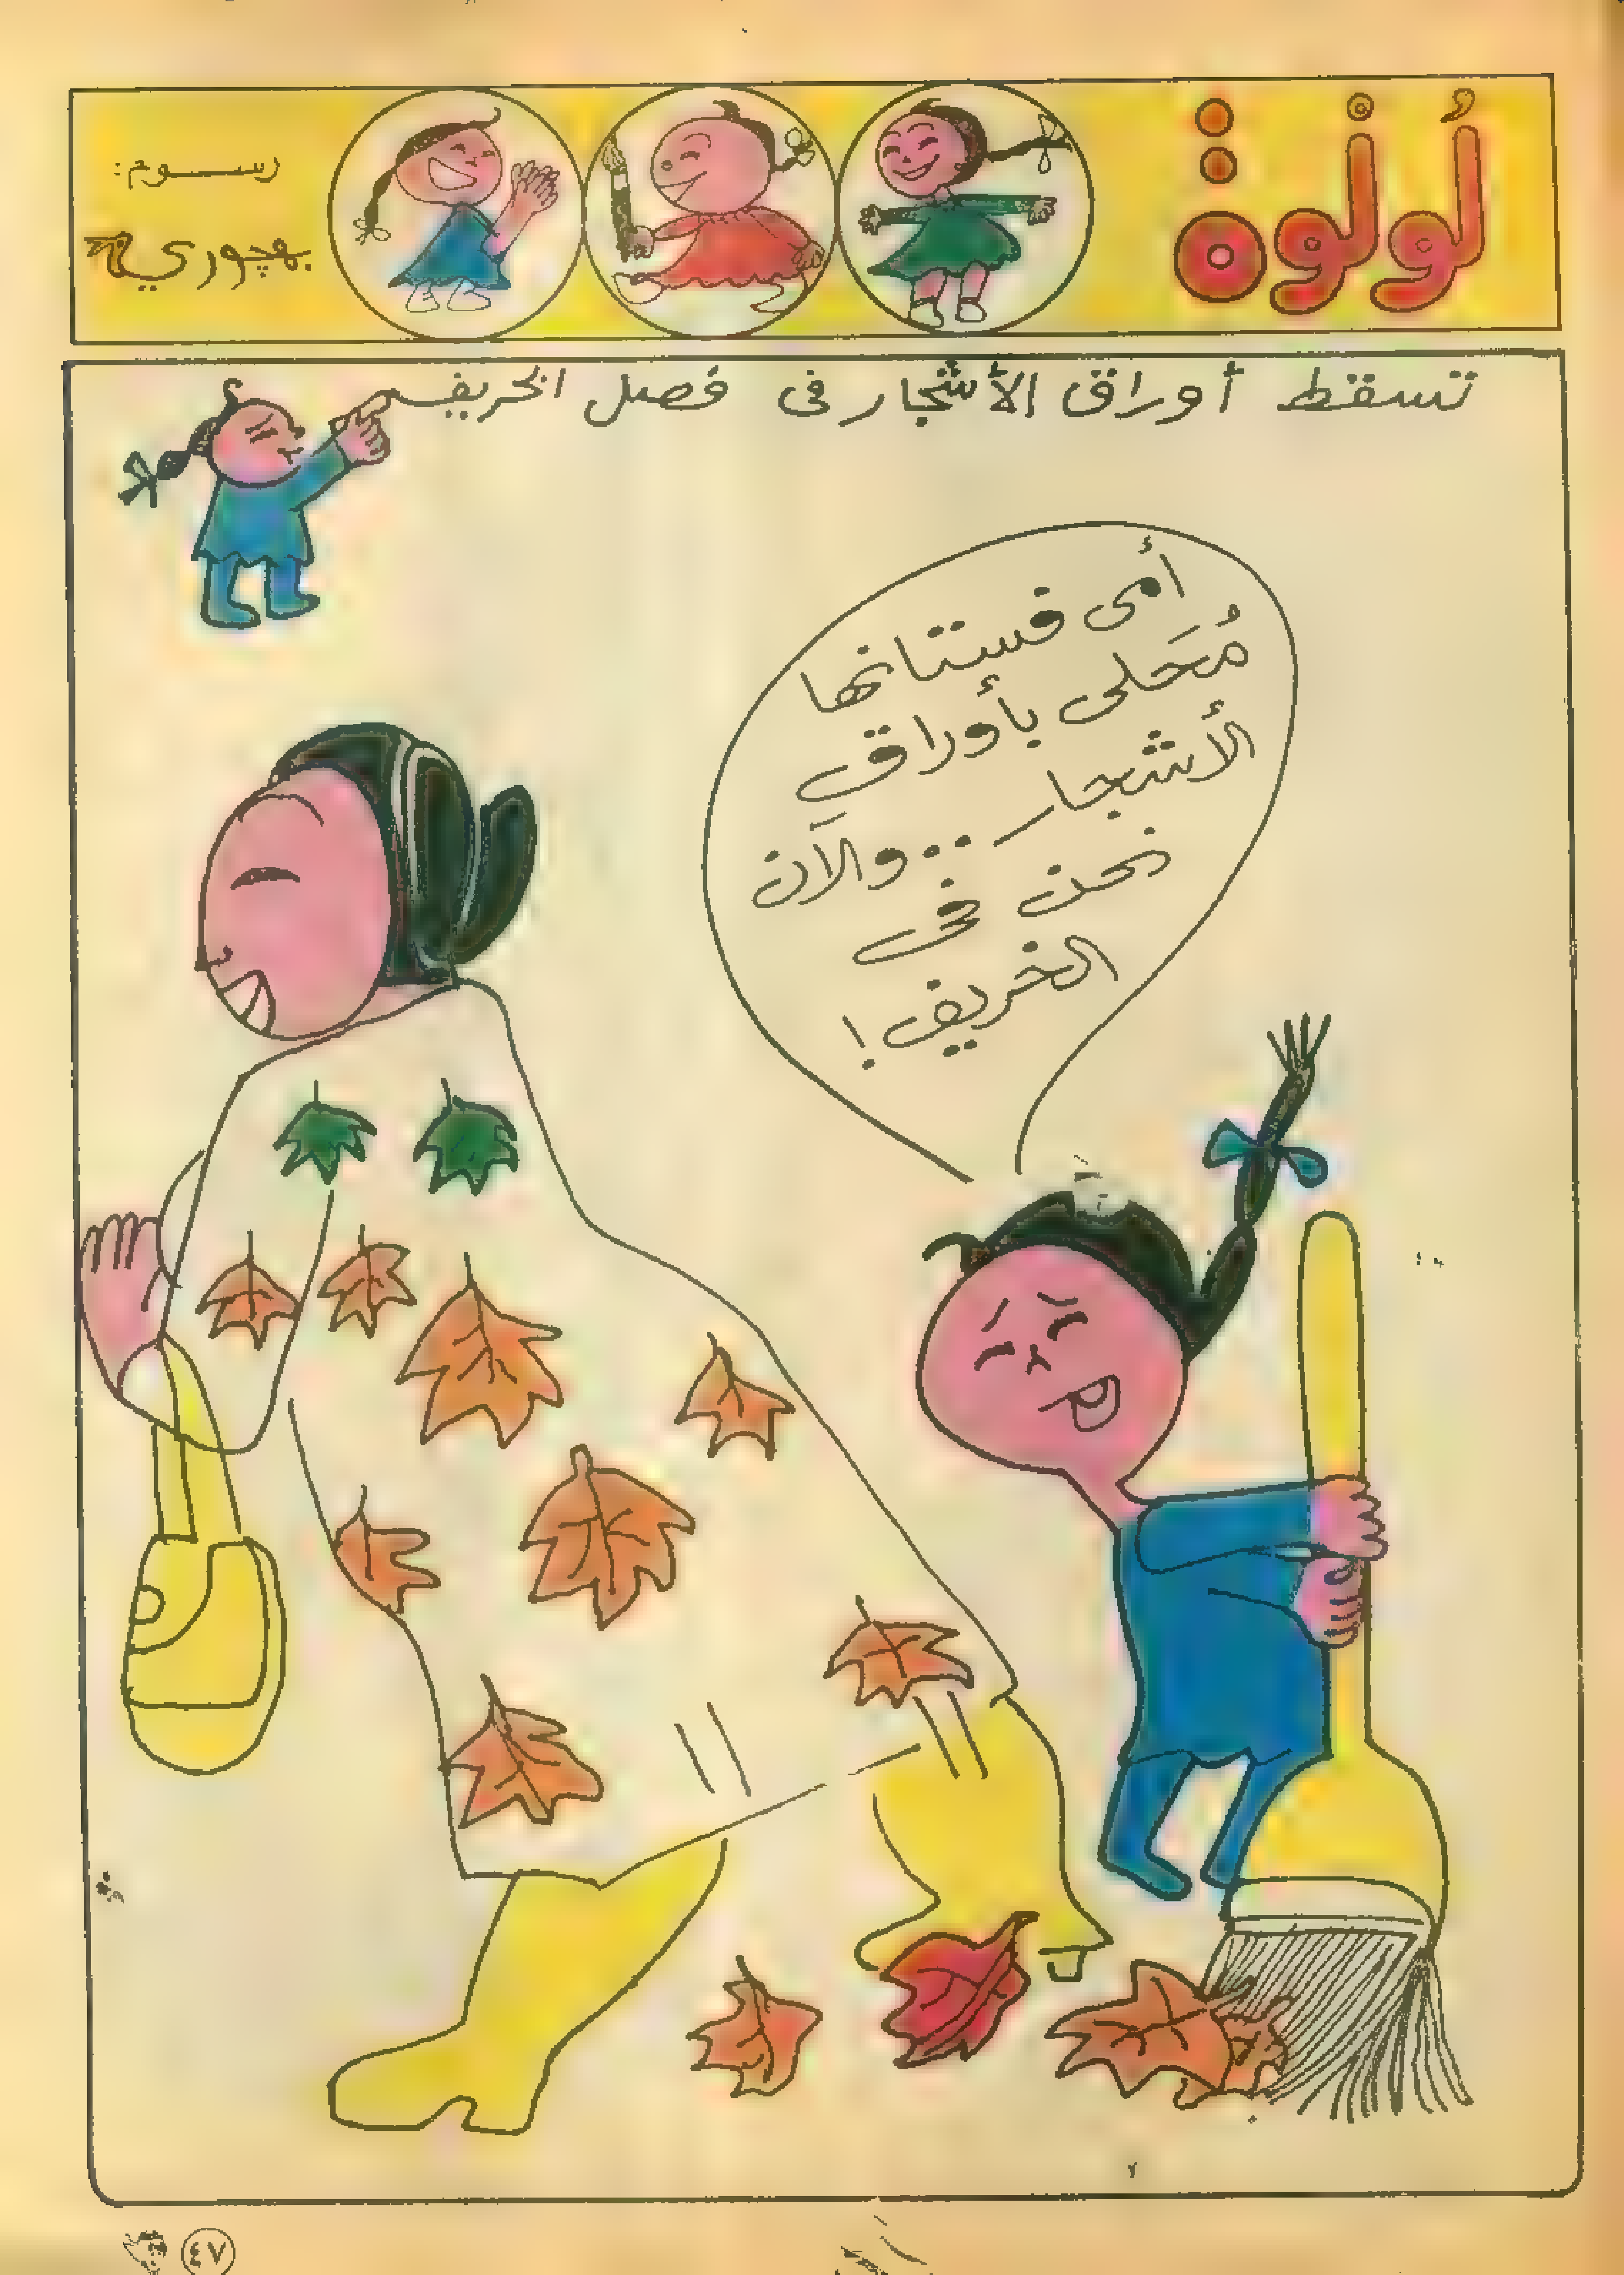 لُوْلُوة
رسوم:
بهچوري
تسقط أوراق الأشجار فى فصل الخريف
أمى فستانها
مُحَلى بأوراقِ
الأشجار .. والآن
نحن فى
الخريف !
٤٧